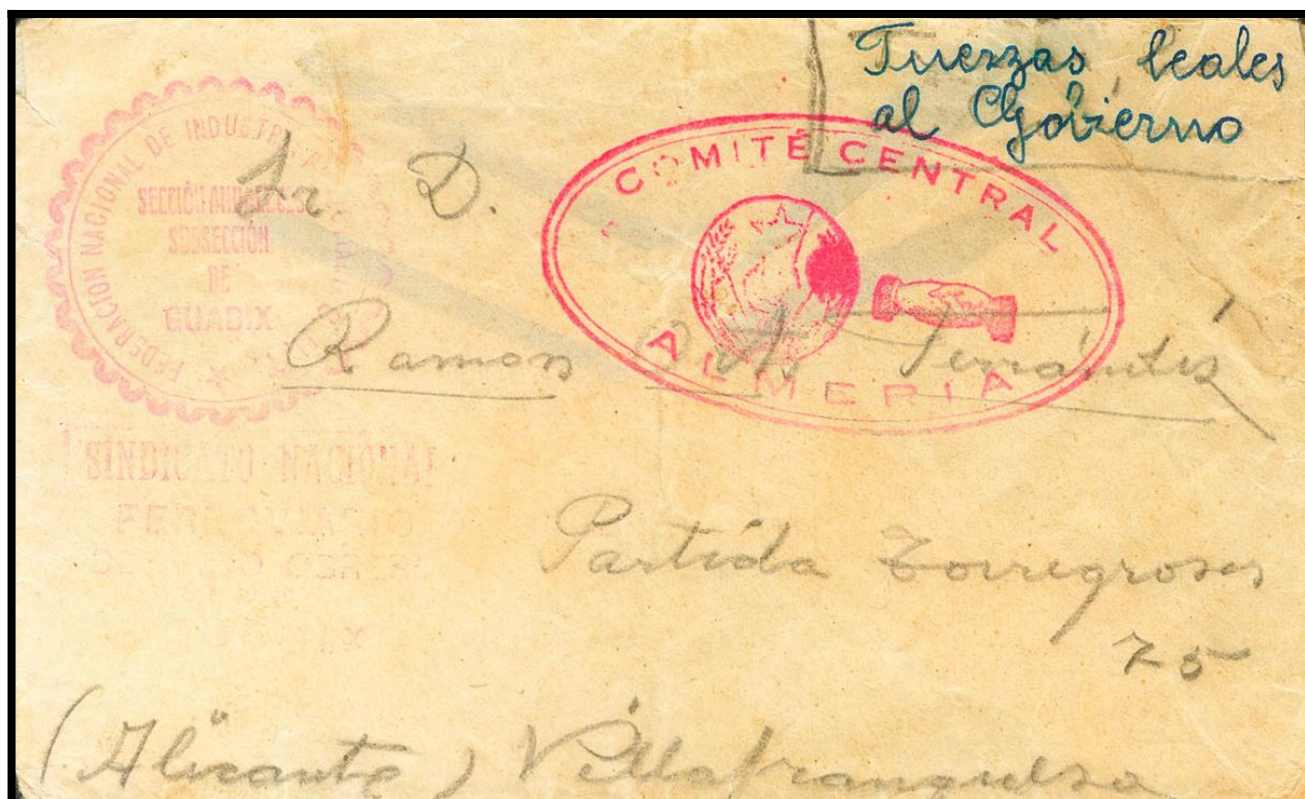 Fuerzas leales
al Gobierno
FEDERACIÓN NACIONAL DE INDUSTRIA
SUBSECCIÓN
DE
GUADIX
COMITÉ CENTRAL
ALMERIA
Sr D.
Ramon
SINDICATO NACIONAL
Partida Torregroses
75
(Alicante) Villafranqueza